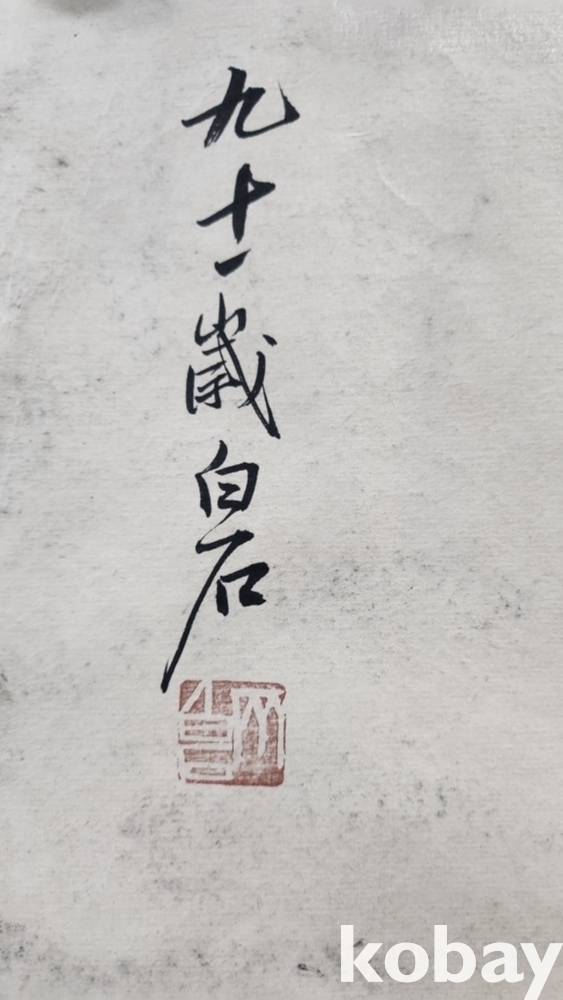 九十一歲白石
kobay